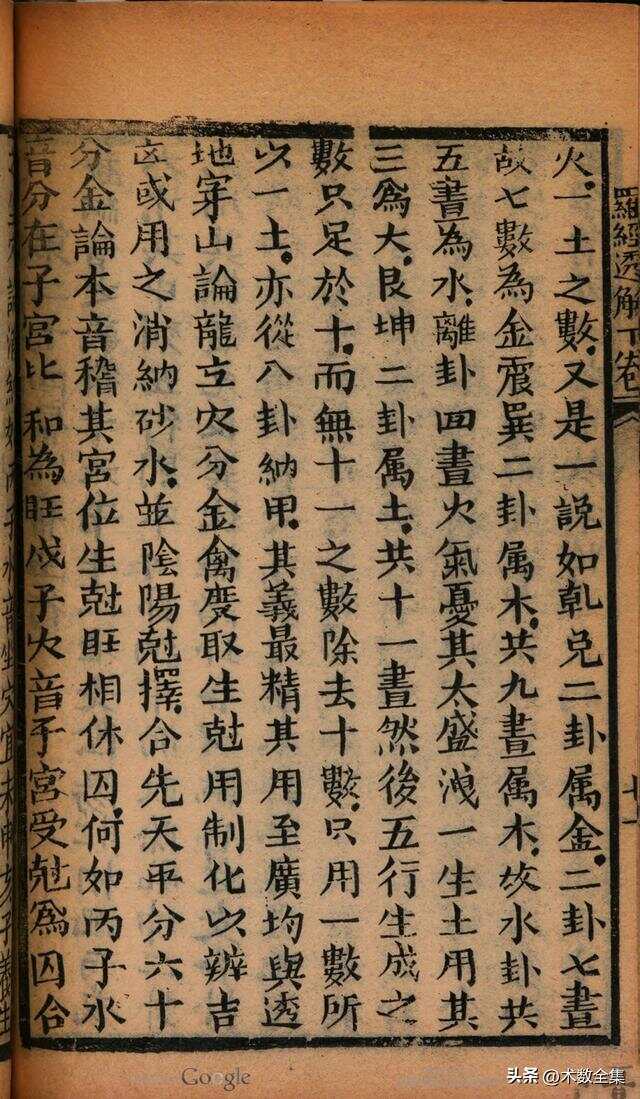 羅經透解下卷
火一土之數又是一説如乹兑二卦属金二卦七畫
故七數為金震巽二卦属木共九畫属木故水卦共
五畫為水離卦四畫火氣憂其太盛洩一生土用其
三為大艮坤二卦属土共十一畫然後五行生成之
數只足於十而無十一之數除去十數只用一數所
以一土亦從八卦納甲其義最精其用至廣均與透
地穿山論龍立穴分金禽度取生尅用制化以辨吉
或用之消納砂水並陰陽尅擇合先天平分六十
分金論本音稽其宮位生尅旺相休囚何如丙子水
音分在子宮比和為旺戊子火音子宮受尅為囚合
Google
头条 @术数全集